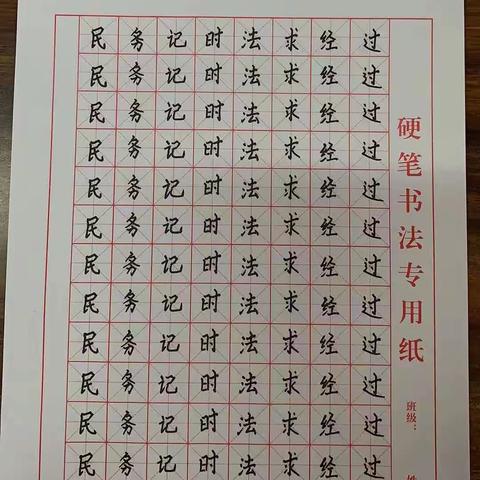 民务记时法求经过
民务记时法求经过
民务记时法求经过
民务记时法求经过
民务记时法求经过
民务记时法求经过
民务记时法求经过
民务记时法求经过
民务记时法求经过
民务记时法求经过
民务记时法求经过
民务记时法求经过
硬笔书法专用纸
班级：
姓